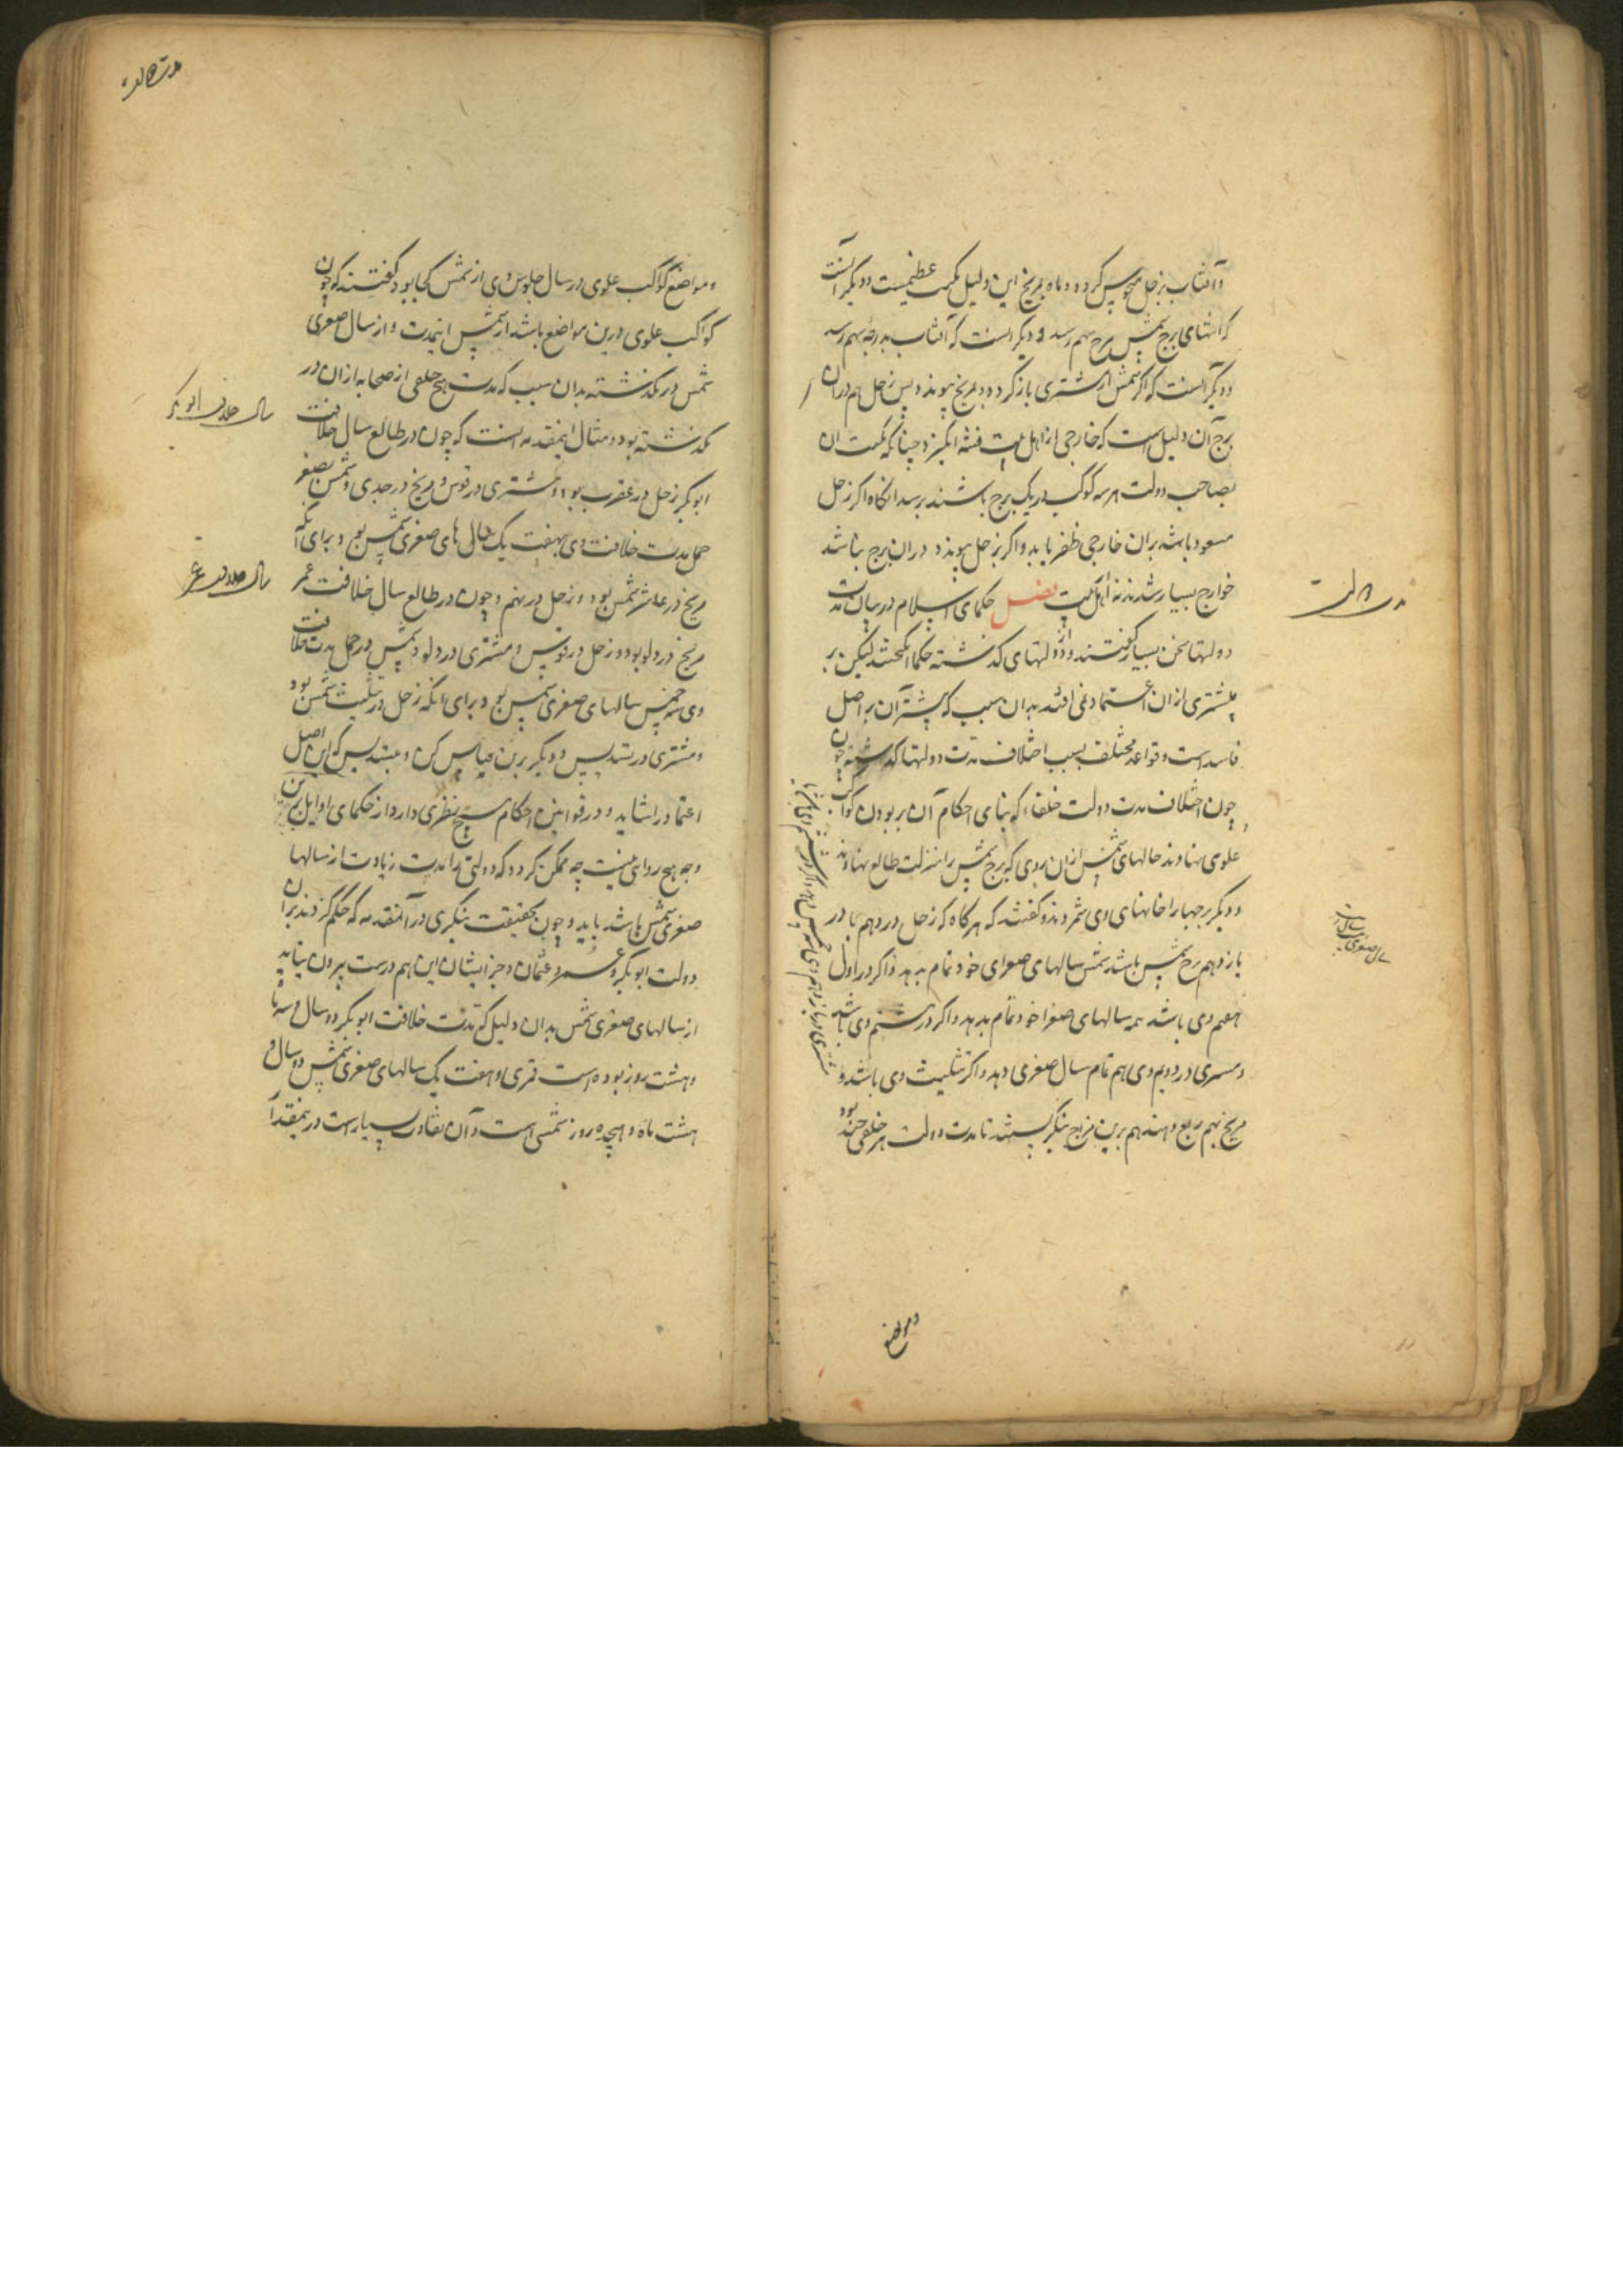 و آفتاب بزحل منحوس کردد و ماه بمریخ این دلیل نکبت عظیمست و دیکر آنست
که انتهای برج شمس ببرج سهم رسد و دیکر انست که آفتاب بدرجه سهم رسد
و دیکر آنست که اکر شمس از مشتری باز کردد و بمریخ پیوندد پس زحل هم دران
برج آن دلیل است که خارجی از اهل بیت فتنه انکیزد چنانکه نکبت آن
بصاحب دولت هر سه کوکب در یک برج باشند برسد انکاه اکر زحل
مسعود باشد بران خارجی ظفر یابد و اکر بزحل پیوندد دران برج نباشد
خوارج بسیار شوند نه از اهل بیت فصل حکمای اسلام در بیان مدت
دولتها سخن بسیار گفتند و از دولتهای کذشته حکمها انکیختند لیکن بر
بیشتری ازان اعتماد نمی افتد بدان سبب که بیشتر آن بر اصل
فاسد است و قواعد مختلف بسبب اختلاف مدت دولتها کذشته چون
چون اختلاف مدت دولت خلفاء که بنای احکام آن بر بودن کواکب
علوی نهادند حالهای شمس ازان روی که برج شمس را بمنزلت طالع نهادند
و دیکر برجها را خانهای وی شمردند و کفتند که هر کاه که زحل در دهم یا در
یازدهم برج شمس باشد شمس سالهای صغرای خود تمام بدهد و اکر در اول
هفتم وی باشد همه سالهای صغرا خود تمام بدهد و اکر در ششم وی باشد
و مشتری در دویم وی هم تمام سال صغری دهد و اکر تثلیث وی باشد و
مریخ بهم ربع دهند هم برین مزاج بنکریستند تا مدت دولت هر خلفی چند بود
ومواضع
مدت دولت
سال صغری
و مواضع کواکب علوی در سال جلوس وی از شمس کجا بود کفتند که چون
کواکب علوی درین مواضع باشد از شمس اینمدت و از سال صغری
شمس در نکذشته بدان سبب که مدت هیچ خلفی از صحابه ازان در
نکذشته بود و مثال اینمقدمه آنست که چون در طالع سال خلافت
ابو بکر زحل در عقرب بود و مشتری در قوس و مریخ در جدی و شمس بصفر
حمل مدت خلافت وی بهفت یک سال های صغری شمس بود برای آنکه
مریخ در عاشر شمس بود و زحل در نهم و چون در طالع سال خلافت عمر
مریخ در دلو بود و زحل در قوس و مشتری در دلو و شمس در حمل مدت خلافت
وی سه خمس سالهای صغری شمس بود برای آنکه زحل در تثلیث شمس بود
و مشتری در تسدیس و دیکر برین قیاس کن و مهندس که این اصل
اعتماد را نشاید و در قوانین احکام هیچ نظیری ندارد از حکمای اوایل برین
وجه هیچ روایتی نیست چه ممکن نکردد که دولتی را مدت زیادت از سالها
صغری شمس باشد باید و چون بحقیقت بنکری در آنمقدمه که حکم کردند بران
دولت ابو بکر و عمر و عثمان و جز ایشان این هم درست بیرون نیاید
از سالهای صغری شمس بدان دلیل که مدت خلافت ابو بکر دو سال و سه ماه
و هشت روز بوده است قمری و هفت یک سالهای صغری شمس دو سال و
هشت ماه و هیجده روز شمسی است و آن تفاوت بسیار است در بنمقدار
سال خلافت ابو بکر
سال خلافت عمر